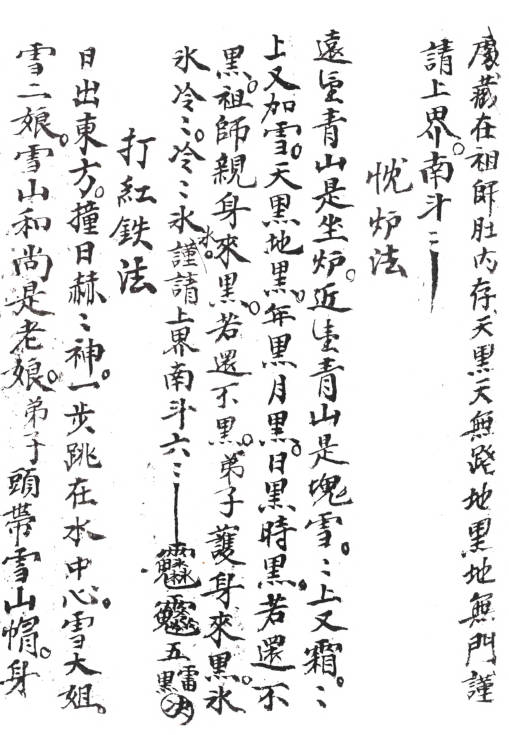 藏在祖師肚內存天黑天無路地黑地無門謹
請上界。南斗〻
忱炉法
遠望青山是坐炉。近望青山是塊雪。〻上又霜。〻
上又加雪。天黑地黑。年黑月黑。日黑時黑。若還不
黑。祖師親身來黑。若還不黑。弟子護身來黑。氷
氷冷〻。冷〻氷氷。謹請上界南斗六〻五雷黑
打紅鉄法
日出東方。撞日赫〻神。一步跳在水中心。雪大姐。
雪二娘。雪山和尚是老娘。弟子頭帶雪山帽。身